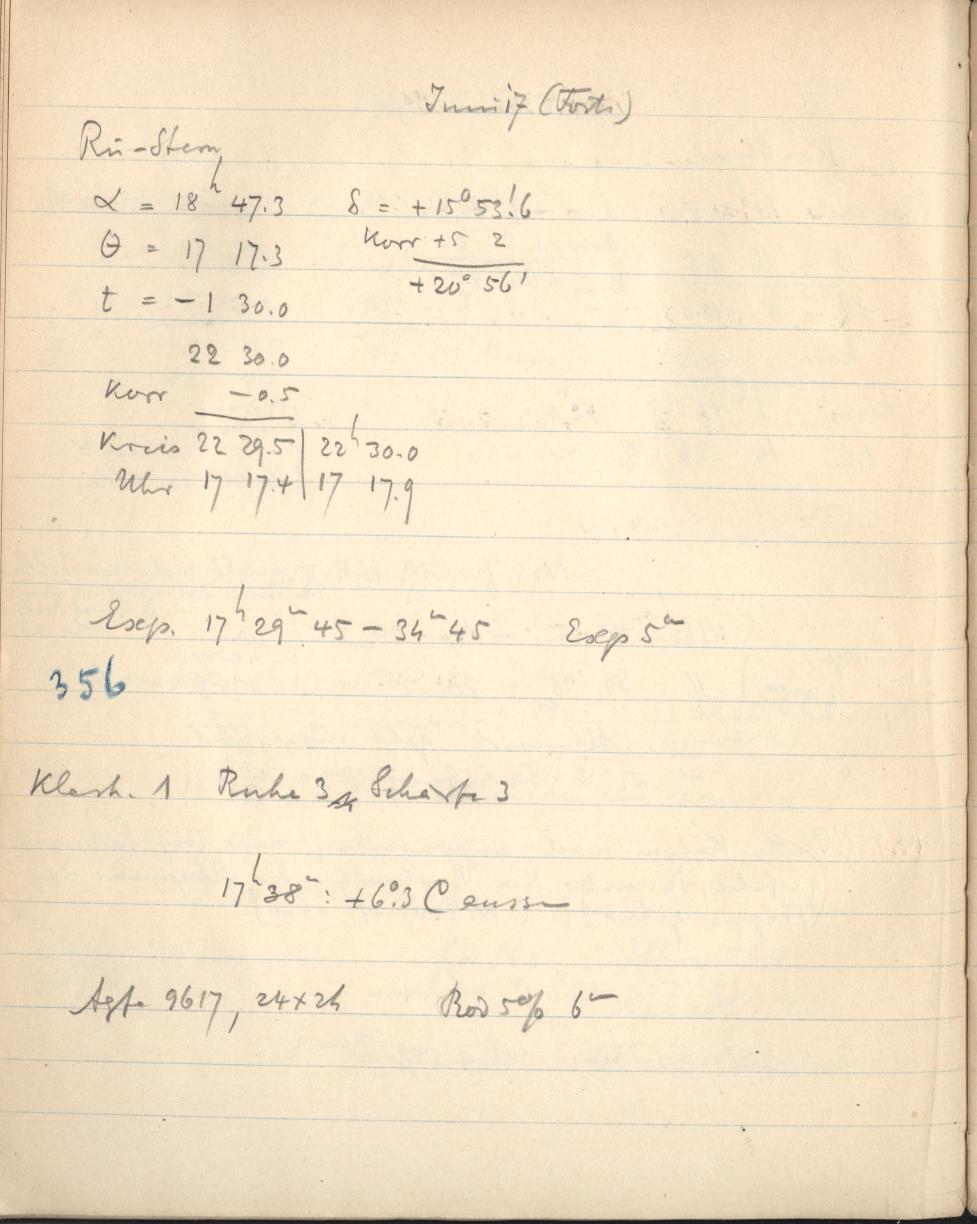 Juni 17 (Forts)
Rü-Stern
α = 18ʰ 47.3 δ = +15° 53!6
θ = 17 17.3 Korr +5 2
t = -1 30.0 +20° 56'
22 30.0
Korr -0.5
Kreis 22 29.5 | 22ʰ 30.0
Uhr 17 17.4 | 17 17.9
Exp. 17ʰ 29ᵐ 45 - 34ᵐ 45 Exp 5ᵐ
356
Klarh. 1 Ruhe 3 Schärfe 3
17ʰ 38ᵐ: +6°.3 C aussen
Agfa 9617, 24×24 Rod 5% 6ᵐ